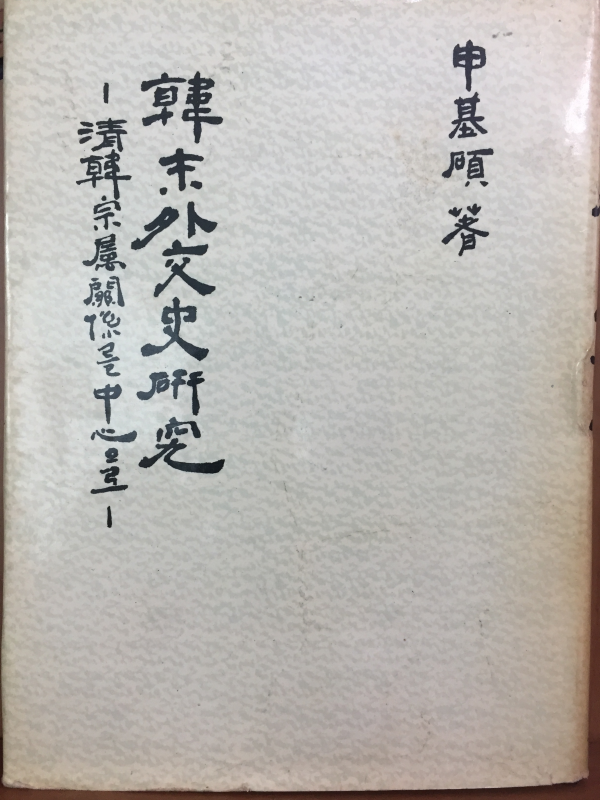 申基碩 著
韓末外交史硏究
-淸韓宗属關係를中心으로-